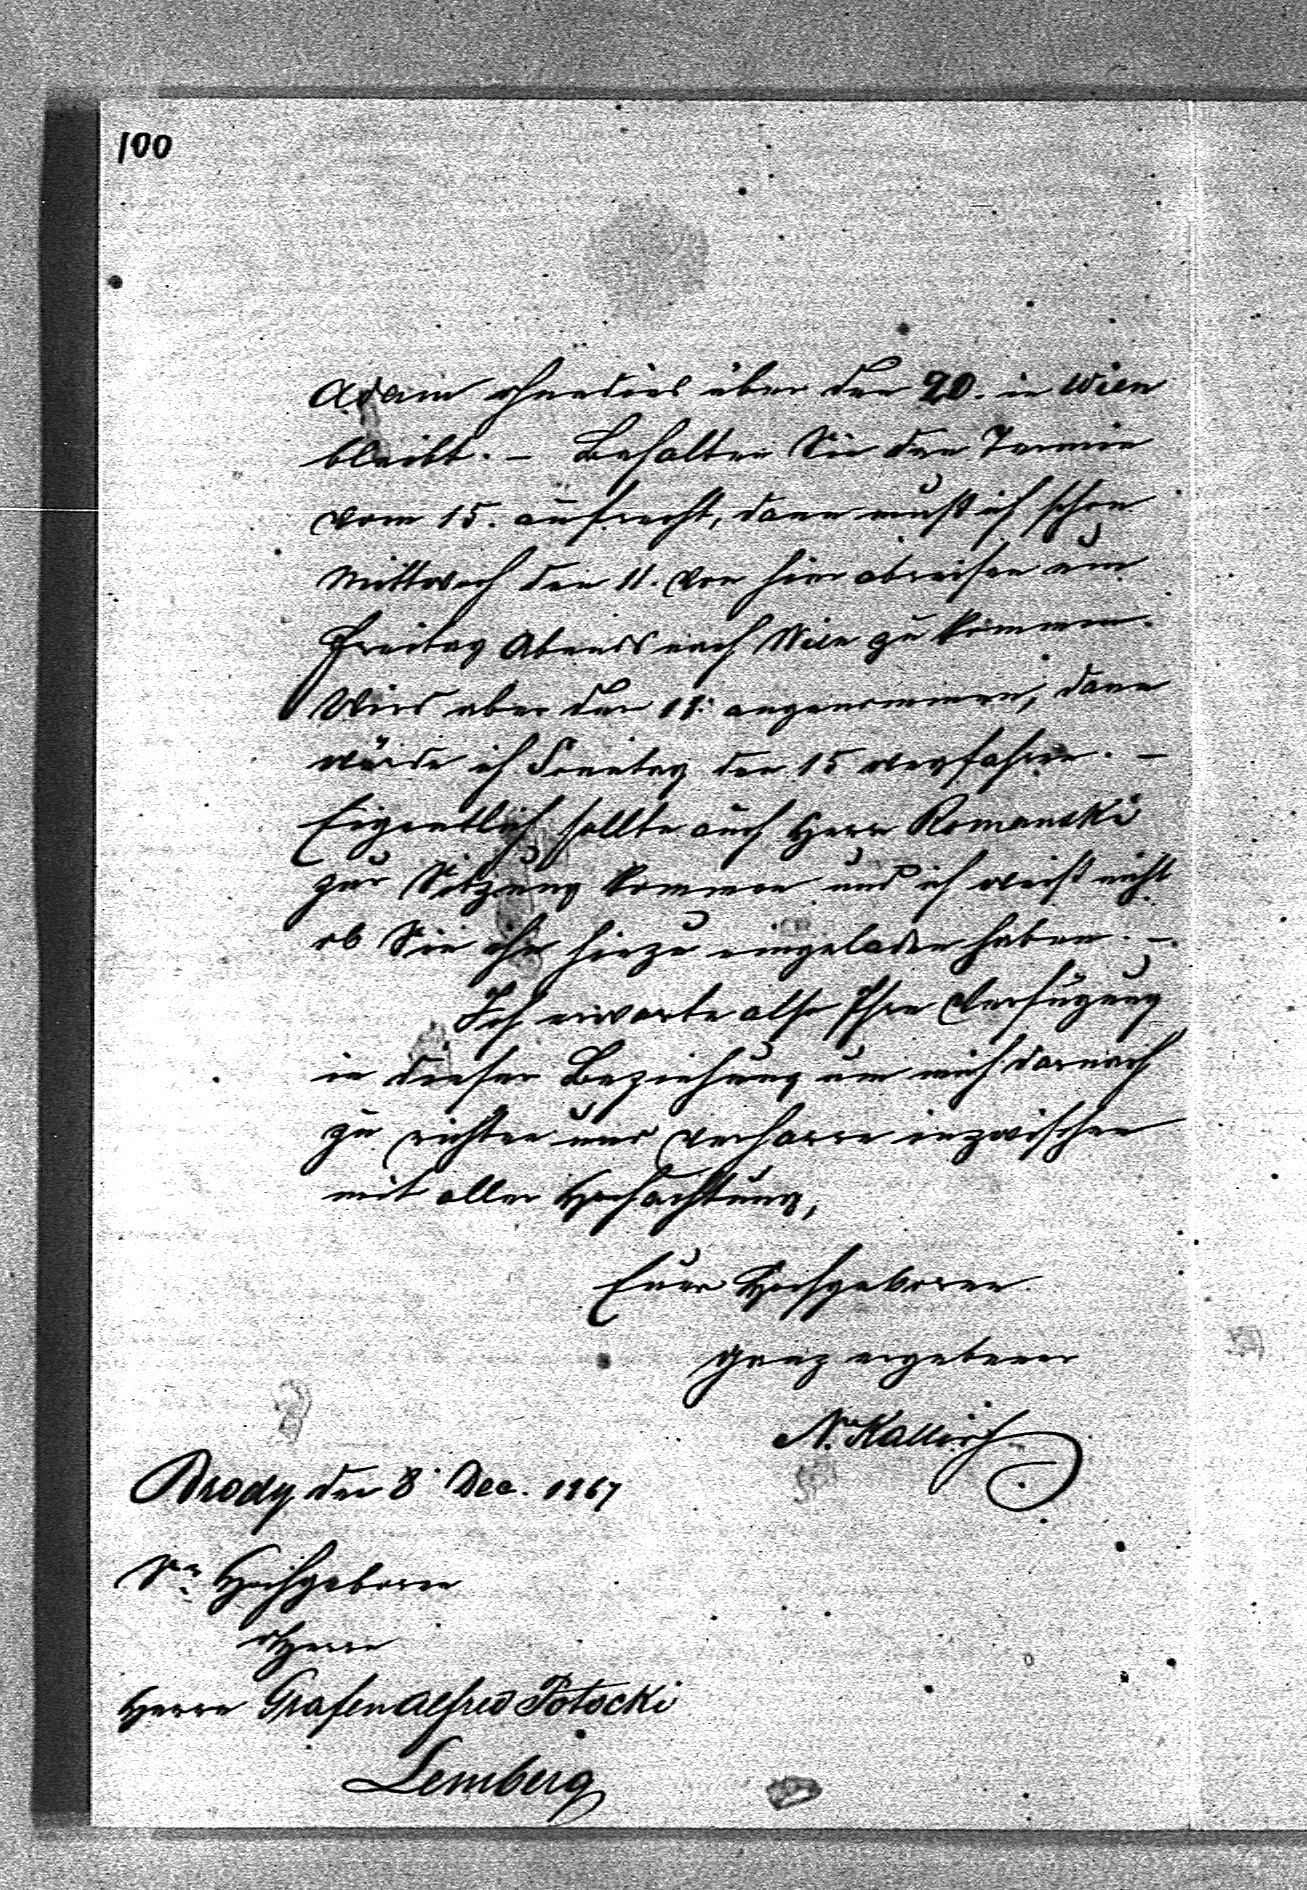 100
Adam ohnedies über den 20. in Wien
bleibt. – Behalten Sie den Termin
vom 15. aufrecht, dann muß ich schon
Mittwoch den 11. von hier abreisen um
Freitag Abends nach Wien zu kommen.
Wird aber der 18: angenommen, dann
würde ich Sonntag den 15 wegfahren. –
Eigentlich sollte auch Herr Romanski
zur Sitzung kommen und ich weiß nicht
ob Sie ihn hiezu eingeladen haben. –
Ich erwarte also Ihre Verfügung
in dieser Beziehung um mich darnach
zu richten und verharre inzwischen
mit aller Hochachtung,
Euer Hochgeboren
ganz ergebener
N. Kallir
Brody den 8 Dec. 1867
Sr Hochgeboren
Herrn
Herrn Grafen Alfred Potocki
Lemberg